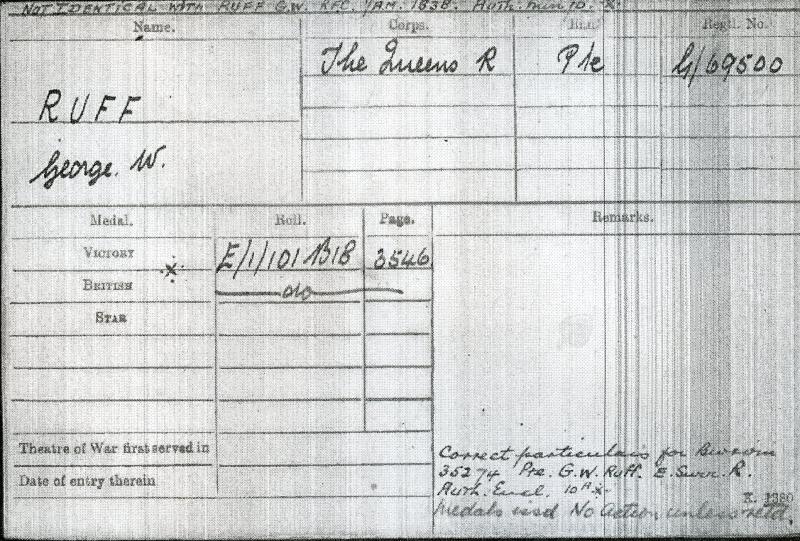 NOT IDENTICAL WITH RUFF G.W. RFC. 1AM. 1838. Auth. Min 10. X.
Name. Corps. Regtl. No.
The Queens R Pte G/69500
RUFF
George. W.
Medal. Roll. Page. Remarks.
VICTORY E/1/101 B18 3546
BRITISH do
STAR
Theatre of War first served in
Date of entry therein
Correct particulars for
35274 Pte. G.W. Ruff. E. Surr. R.
Auth. Encl. 10A X.
K. 1380
Medals issd No Action unless retd.